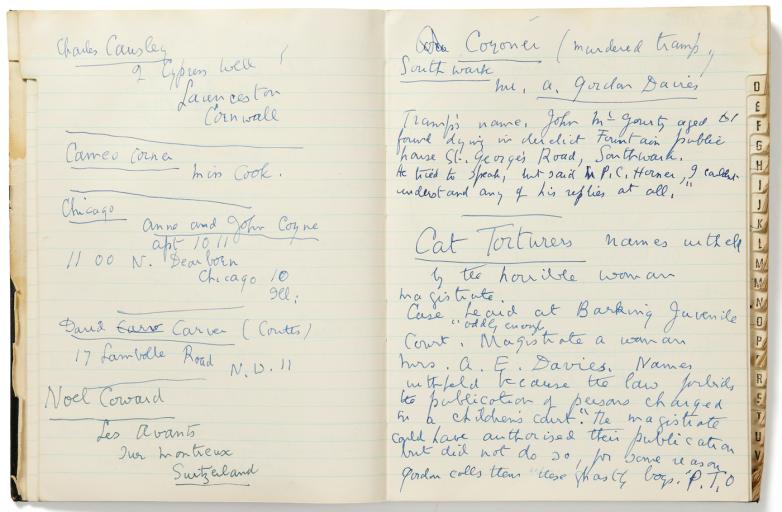 Charles Causley
2 Cypress Well
Launceston
Cornwall
Cameo Corner
Miss Cook.
Chicago
Anne and John Coyne
apt 10 11
11 00 N. Dearborn
Chicago 10
Ill.
David Carver (Coutts)
17 Lambolle Road
N.W. 11
Noel Coward
Les Avants
Sur Montreux
Switzerland
Coroner (murdered tramp,
Southwark
Mr. A. Gordon Davies
Tramp's name. John Mc Gourty aged 61
found dying in derelict Fountain public
house St. Georges Road, Southwark.
He tried to speak, but said P.C. Horner, "I couldn't
understand any of his replies at all."
Cat Torturers names witheld
by the horrible woman
magistrate.
Case heard at Barking Juvenile
"oddly enough
Court. Magistrate a woman
Mrs. A. E. Davies. Names
withheld because the law forbids
the publication of persons charged
in a children's court." The magistrate
could have authorised their publication
but did not do so, for some reason
Gordon calls them "these ghastly boys." P.T.O
D
E
F
G
H
I
J
K
L
M
M
N
O
P
R
S
T
U
V